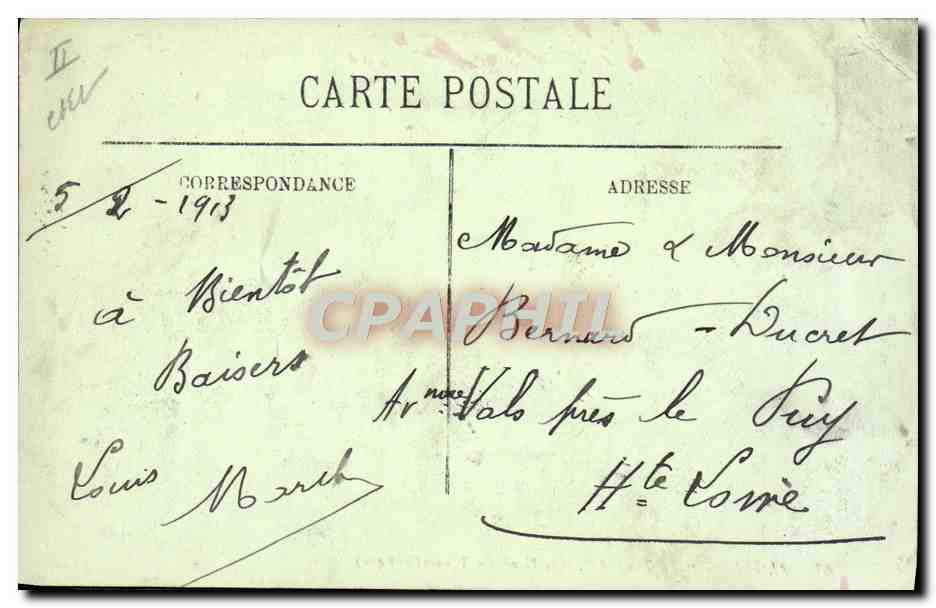 II
CARTE POSTALE
CORRESPONDANCE
5/2 - 1913
à Bientôt
Baisers
Louis
ADRESSE
Madame & Monsieur
Bernard - Ducret
Avnue Vals près le Puy
Hte Loire
CPAPHIL